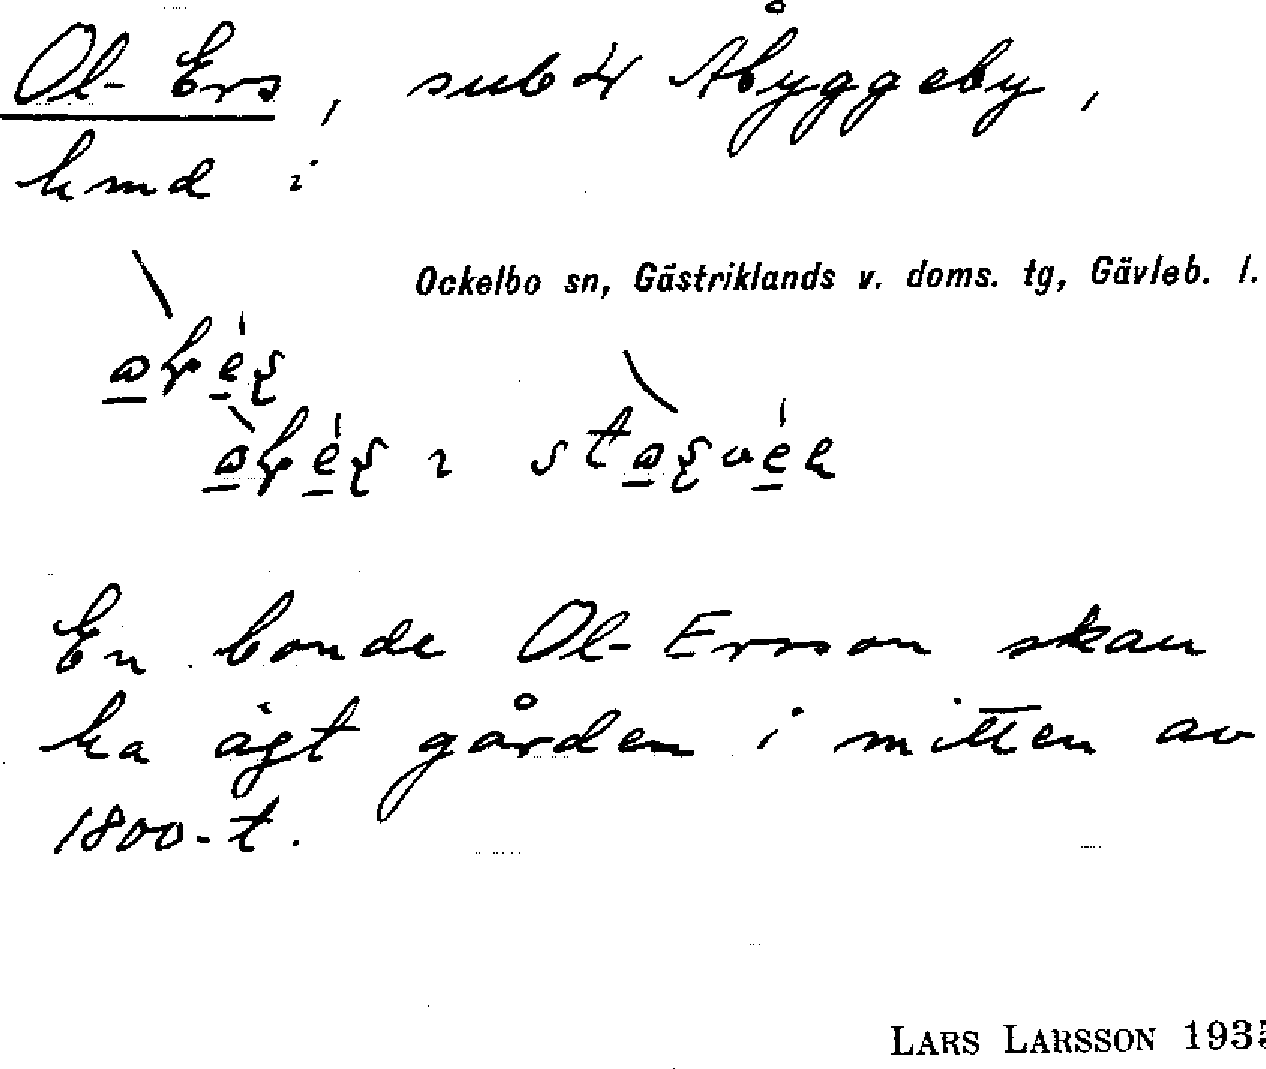 Ol-Ers, sub 4 Åbyggeby,
hmd i
Ockelbo sn, Gästriklands v. doms. tg, Gävleb. l.
En bonde Ol-Ersson skall
ha ägt gården i mitten av
1800-t.
LARS LARSSON 1935